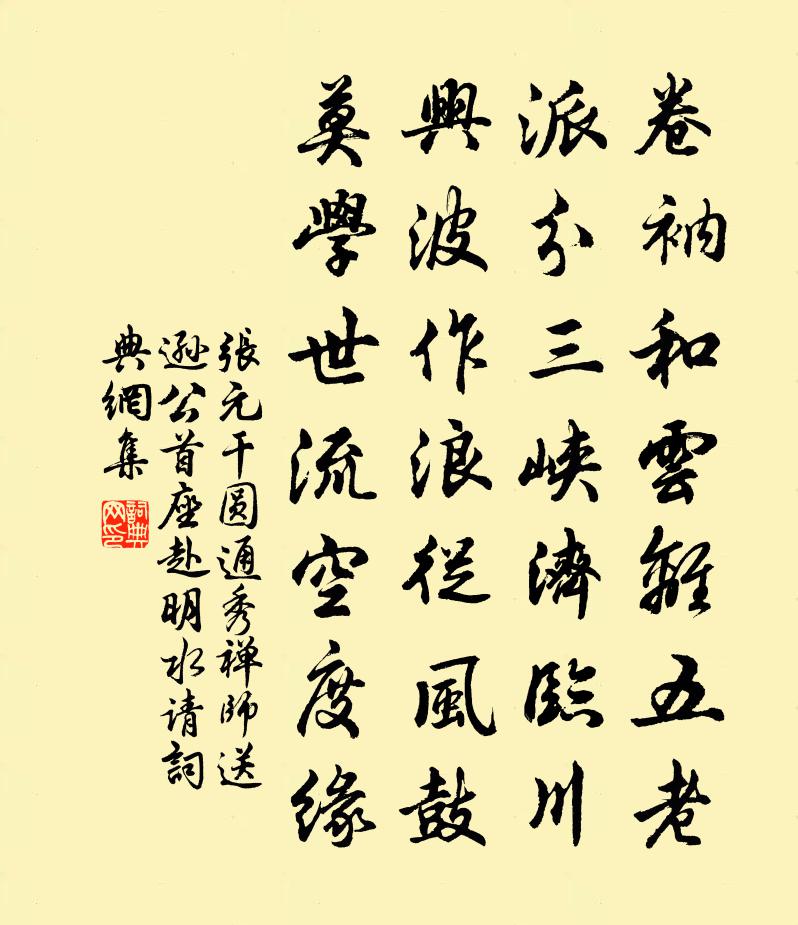 卷衲和雲離五老
派分三峽濟臨川
興波作浪從風鼓
莫學世流空度緣
張元干圓通秀禅師送
遜公首座赴明水请詞
典網集
詞典
网印